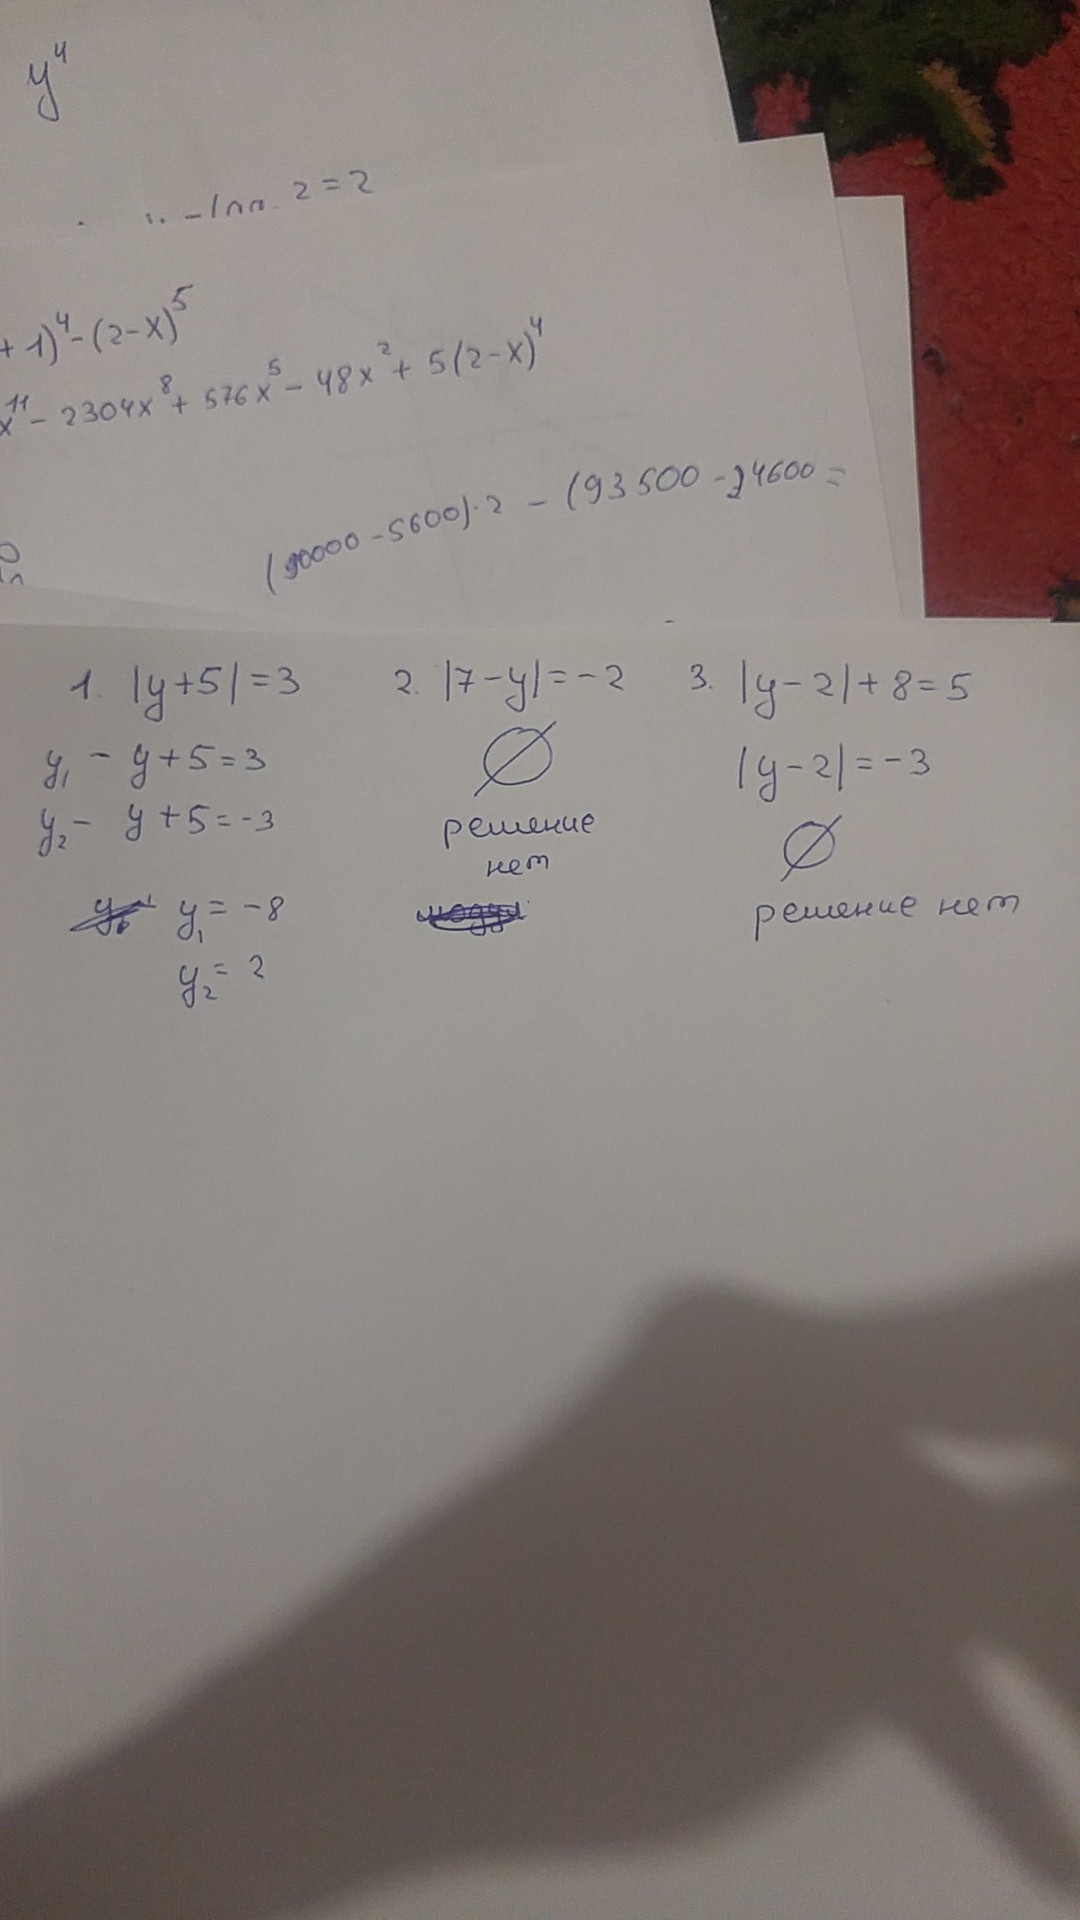 y⁴
2 = 2
+ 1)⁴ - (2-x)⁵
x¹¹ - 2304x⁸ + 576x⁵ - 48x² + 5(2-x)⁴
(90000 - 5600)·2 - (93500 - 24600 =
1. |y+5| = 3
y₁ - y+5=3
y₂ - y+5=-3
y₁ = -8
y₂ = 2
2. |7-y| = -2
∅
решение
нет
3. |y-2| + 8 = 5
|y-2| = -3
∅
решение нет